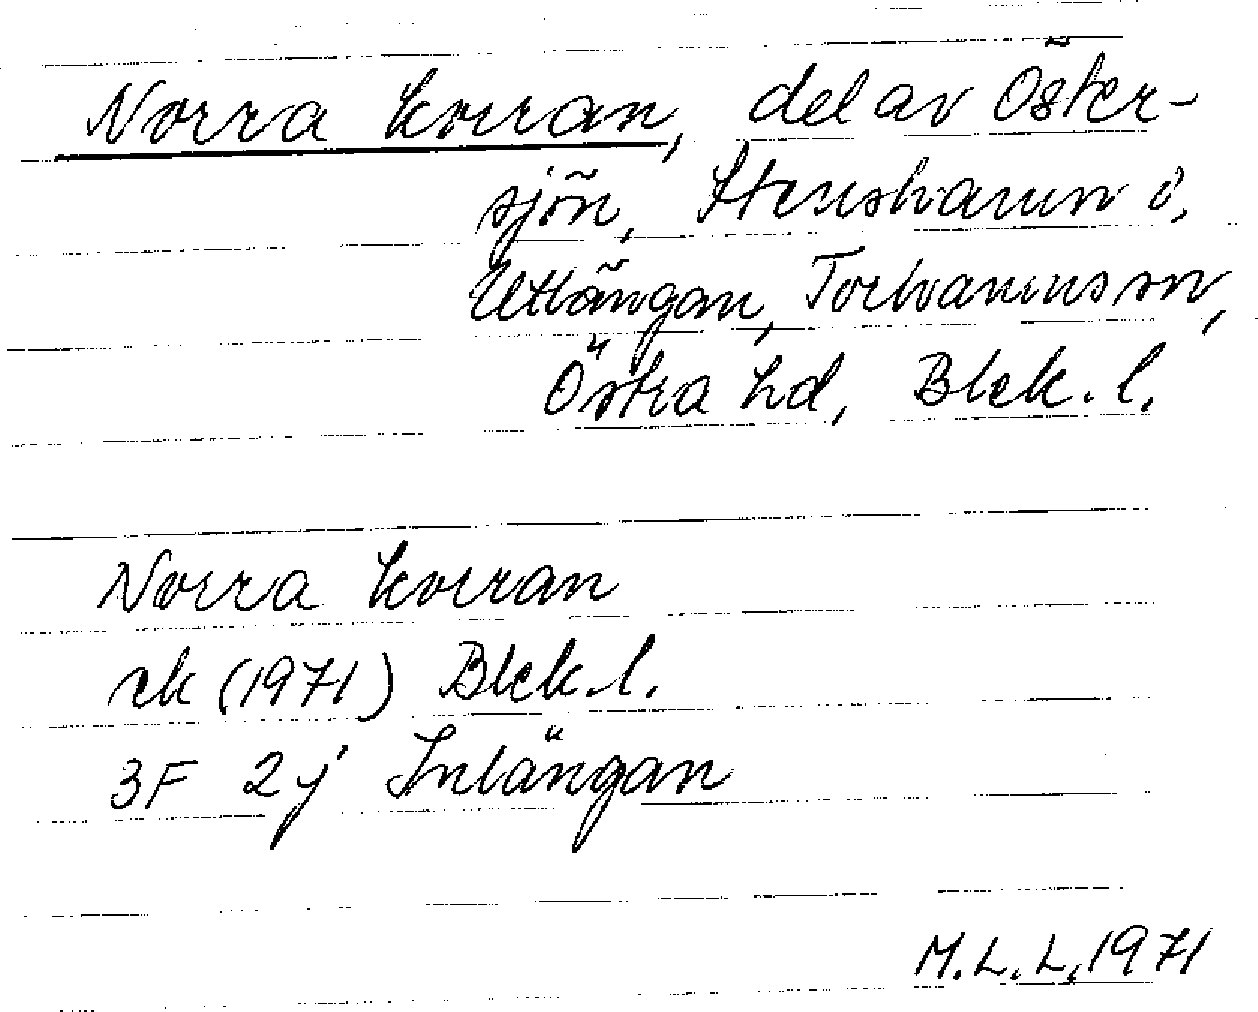 Norra korran, del av Öster-
sjön, Stenshamn o,
Utlängan, Torhamns sn,
Östra hd, Blek. l.
Norra korran
rk (1971) Blek. l.
3F 2j Inlängan
M.L.L. 1971